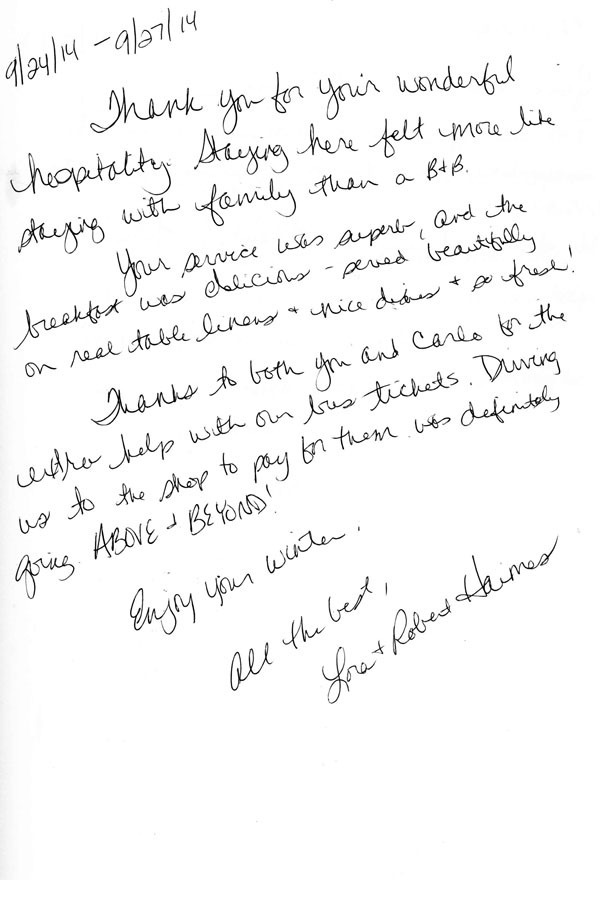 9/24/14 - 9/27/14
Thank you for your wonderful
hospitality. Staying here felt more like
staying with family than a B+B.
Your service was superb, and the
breakfast was delicious - served beautifully
on real table linens + nice dishes + so fresh!
Thanks to both you and Carlo for the
extra help with our bus tickets. Driving
us to the shop to pay for them was definitely
going ABOVE + BEYOND!
Enjoy your winter.
All the best,
Lora + Robert Haimes